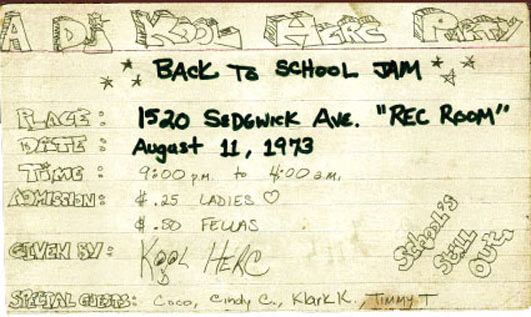 A DJ KOOL HERC PARTY
BACK TO SCHOOL JAM
PLACE: 1520 SEDGWICK AVE. "REC ROOM"
DATE: August 11, 1973
TIME: 9:00 p.m. to 4:00 a.m.
ADMISSION: $.25 LADIES ♡
$.50 FELLAS
GIVEN BY: KOOL HERC
SCHOOL'S
STILL
OUT.
SPECIAL GUESTS: Coco, Cindy C., Klark K., Timmy T